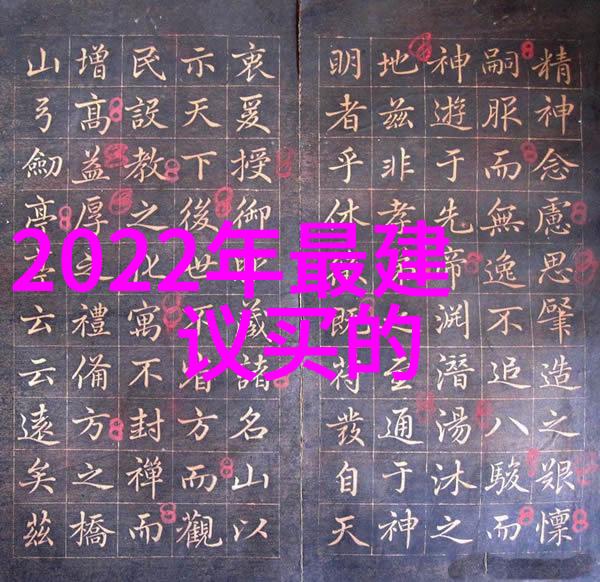 2022年最建
议买的
精神念慮思肇造之艱懍
嗣服而無逸不追八駿而
神遊于先帝渊潛湯沐之
地兹非孝至通于神
明者乎休既符發自天
衷爰授御義諸名山以
示天下後世不省方而觀
民設教之化寓不封禪而
增髙益厚之禮俻方之橋
山弓劒亭云云遠矣兹